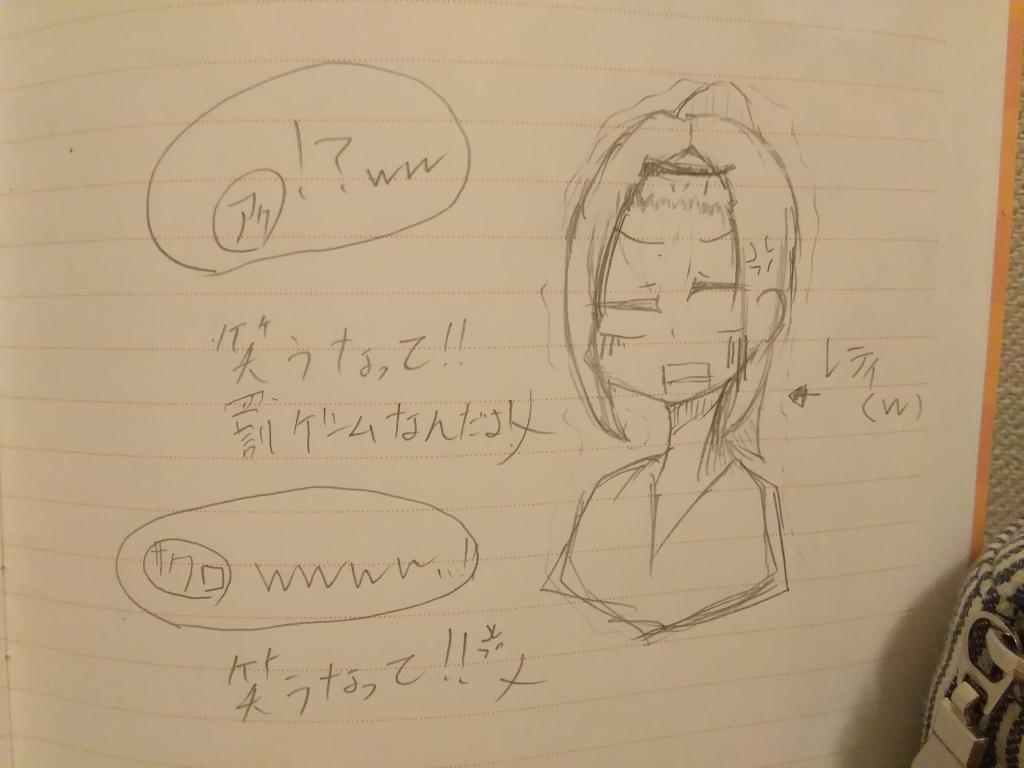 アク !?ww
笑うなって!!
罰ゲームなんだよ!
ザクロ wwww..!!
笑うなって!!
レディ
(w)